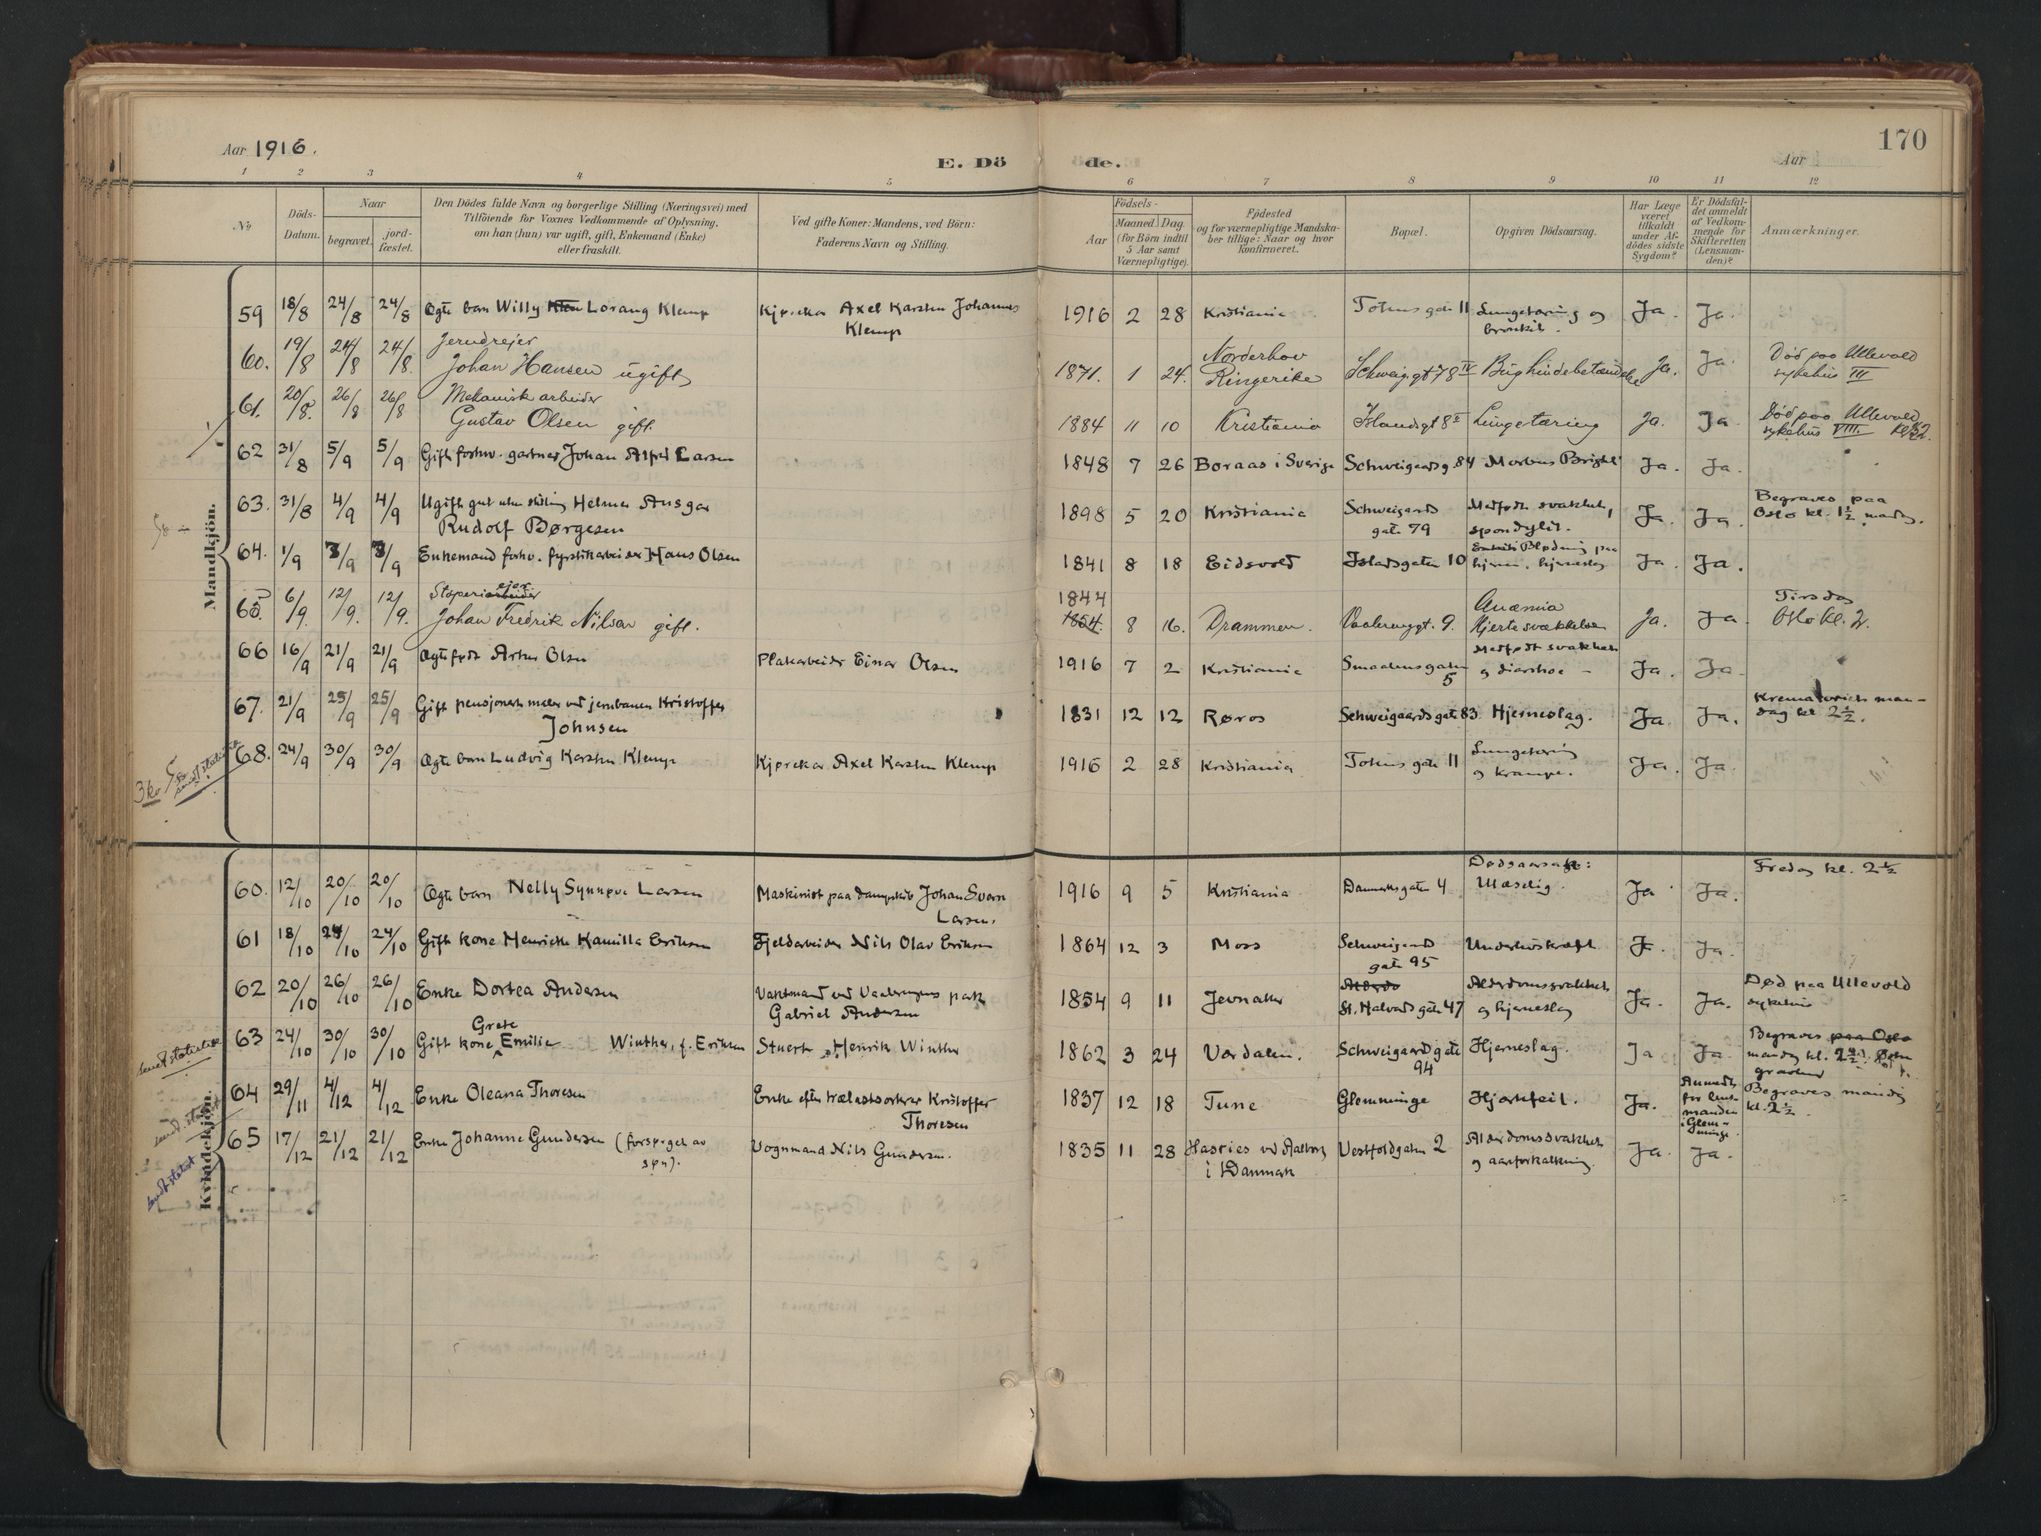 Aar 1916.
E. Dö de.
Aar
170
1 2 3 4 5 6 7 8 9 10 11 12
No.
Döds-Datum.
Naar
begravet.
jord-fæstet.
Den Dödes fulde Navn og borgerlige Stilling (Næringsvei) med
Tilföiende for Voxnes Vedkommende af Oplysning,
om han (hun) var ugift, gift, Enkemand (Enke)
eller fraskilt.
Ved gifte Koner: Mandens, ved Börn:
Faderens Navn og Stilling.
Födsels-
Aar
Maaned. Dag.
(for Börn indtil
5 Aar samt
Værnepligtige).
Födested
og for værnepligtige Mandska-
ber tillige: Naar og hvor
konfirmeret.
Bopæl.
Opgiven Dödsaarsag.
Har Læge
været
tilkaldt
under Af-
dödes sidste
Sygdom?
Er Dödsfal-
det anmeldt
af Vedkom-
mende for
Skifteretten
(Lensman-
den)?
Anmærkninger.
Mandkjön.
59 18/8 24/8 24/8 Ægte barn Willy Lorang Klemp Kjørekar Axel Karsten Johannes Klemp 1916 2 28 Kristiania Totens gaten 11 Lungetæring og bronkit. Ja. Ja.
60. 19/8 24/8 24/8. Jerndreier Johan Hansen ugift 1871. 1 24. Norderhov Ringerike Schweig.gt 78 IV Bughindebetændelse Ja. Ja. Död paa Ullevold sykehus III
61. 20/8. 26/8 26/8 Mekanisk arbeider Gustav Olsen gift. 1884 11 10 Kristiania Islandsgt 8 II Lungetæring Ja. Ja Död paa Ullevold sykehus VIII.
62 31/8 5/9 5/9 Gift forhv. gartner Johan Alfred Larsen 1848 7 26 Boraas i Sverige Schweigaardsg. 84 Morbus Brighti Ja. Ja.
63. 31/8 4/9 4/9 Ugift gut uten stilling Helmer Ansgar Rudolf Børgesen 1898 5 20 Kristiania Schweigaards gate 79 Medfødt svakhet, spondylit. Ja. Ja. Begraves paa Oslo kl. 1½ mandag.
64. 1/9 7/9 7/9 Enkemand forhv. fyrstikarbeider Hans Olsen 1841 8 18 Eidsvold Islandsgaten 10 Blødning paa hjernen, hjerneslag Ja. Ja.
65. 6/9. 12/9. 12/9. Støperieier Johan Fredrik Nilsen gift. 1844 1854. 8 16. Drammen. Vaalerenggt. 9. Anæmia Hjertesvækkelse Ja. Ja. Tirsdag Oslo kl. 2.
66 16/9 21/9 21/9 Ægtefødt Arne Olsen Platearbeider Einar Olsen 1916 7 2 Kristiania Smaalensgaten 5 Medfødt svakhet og diarrhoe Ja. Ja
67. 21/9 25/9 25/9 Gift pensjonert maler ved jernbanen Kristoffer Johnsen 1831 12 12 Røros Schweigaards gate 83. Hjerneslag. Ja. Ja. Krematoriet mandag kl. 2½.
68. 24/9 30/9 30/9 Ægte barn Ludvig Karsten Klemp Kjørekar Axel Karsten Klemp 1916 2 28 Kristiania Totens gate 11 Lungetæring og krampe. Ja. Ja.
Kvindekjön.
60. 12/10 20/10 20/10 Ægte barn Nelly Synnøve Larsen Maskinist paa dampskib Johan Svern Larsen. 1916 9 5 Kristiania Danmarksgaten 4 Dødsaarsak: Ulæselig. Ja. Ja. Fredag kl. 2½
61 18/10 24/10 24/10 Gift kone Henriette Kamilla Eriksen Fjeldarbeider Nils Olav Eriksen 1864 12 3 Moss Schweigaards gate 95 Underlivskræft Ja. Ja.
62 20/10 26/10 26/10 Enke Dortea Andersen Vaktmand ved Vaalerengens park Gabriel Andersen 1854 9 11 Jevnaker St. Halvards gate 47 Alderdomssvakhet og hjerneslag Ja. Ja. Død paa Ullevold sykehus
63 24/10 30/10 30/10 Gift kone Grete Emilie Winther, f. Eriksen Stuert Henrik Winther 1862 3 24 Værdalen. Schweigaards gate 94 Hjerneslag. Ja Ja. Begraves paa Oslo mandag kl. 2½.
64 29/11 4/12 4/12 Enke Oleana Thoresen Enke efter trælastsorterer Kristoffer Thoresen 1837 12 18 Tune Glemminge Hjertefeil. Ja. Anmeldt for lensmanden i Glemminge. Begraves mandag kl. 2½.
65 17/12 21/12 21/12 Enke Johanne Gundersen (forsørget av søn). Vognmand Nils Gundersen. 1835 11 28 Hasries ved Aalborg i Danmark Vestfoldgaten 2 Alderdomssvakhet og aareforkalkning. Ja. Ja.
sendt statistik